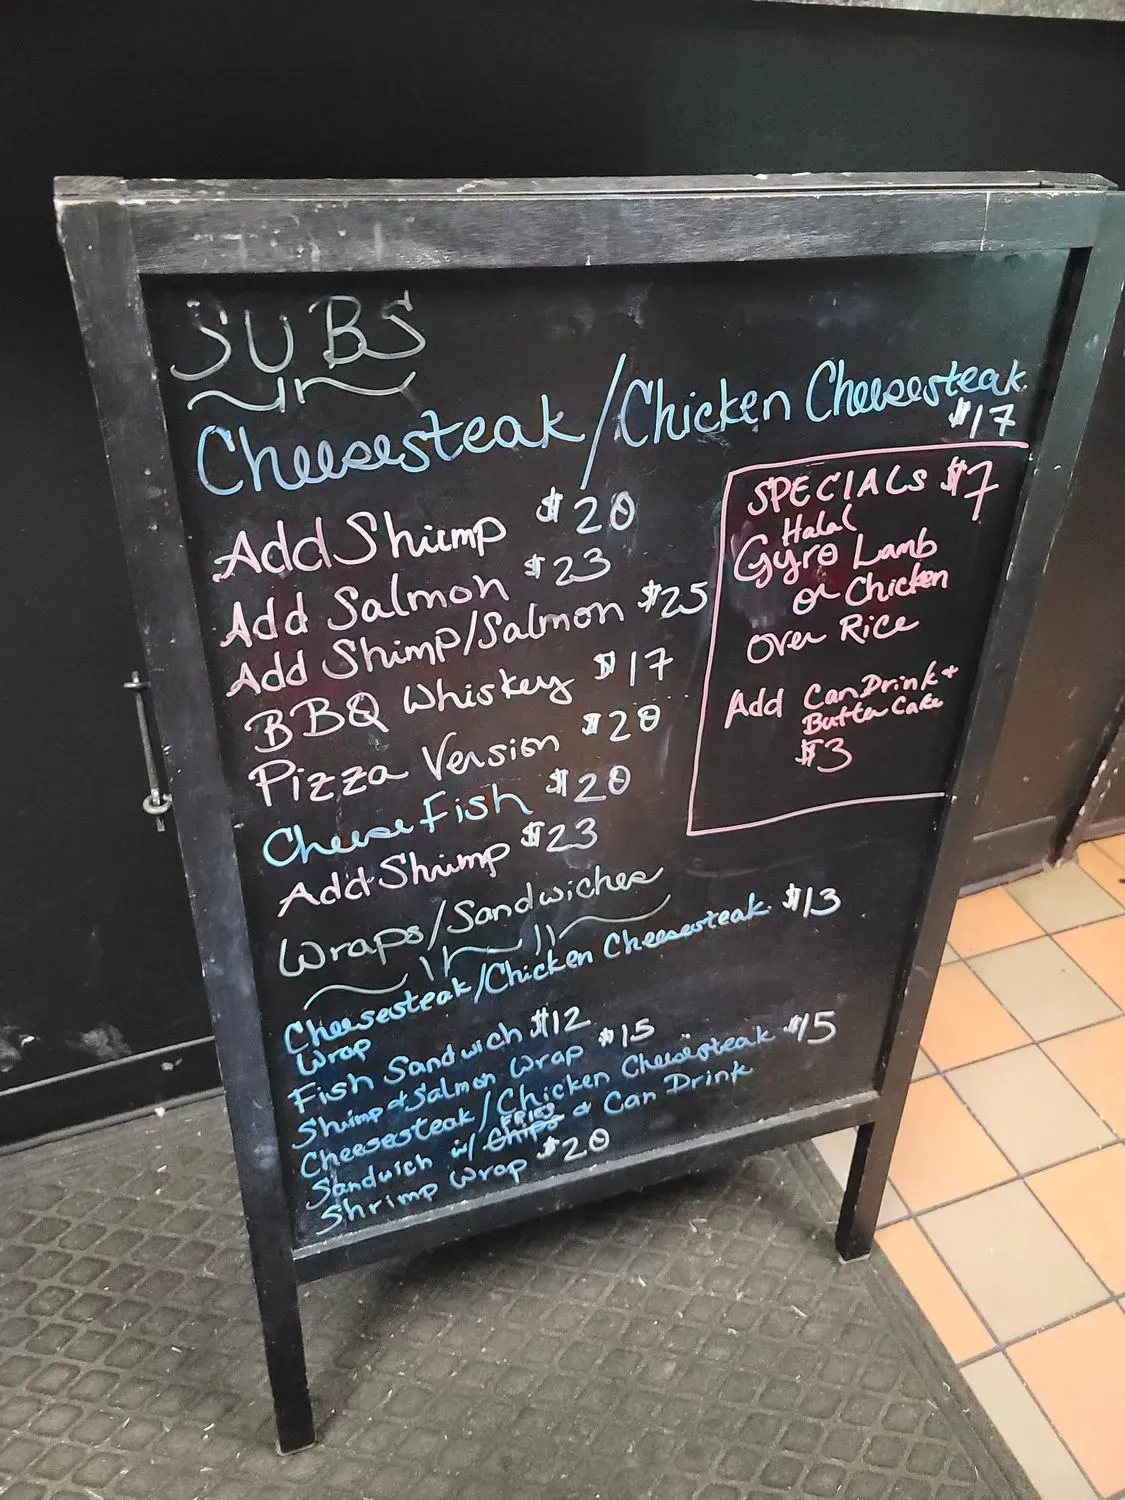 SUBS
Cheesesteak/Chicken Cheesesteak
$17
Add Shrimp $20
Add Salmon $23
Add Shrimp/Salmon $25
BBQ Whiskey $17
Pizza Version $20
Cheese Fish $20
Add Shrimp $23
SPECIALS $7
Halal
Gyro Lamb
or Chicken
Over Rice
Add Can Drink +
Butter Cake
$3
Wraps/Sandwiches
Cheesesteak/Chicken Cheesesteak $13
Wrap
Fish Sandwich $12
Shrimp & Salmon Wrap $15
Cheesesteak/Chicken Cheesesteak $15
FRIES
Sandwich w/ Chips & Can Drink
Shrimp Wrap $20